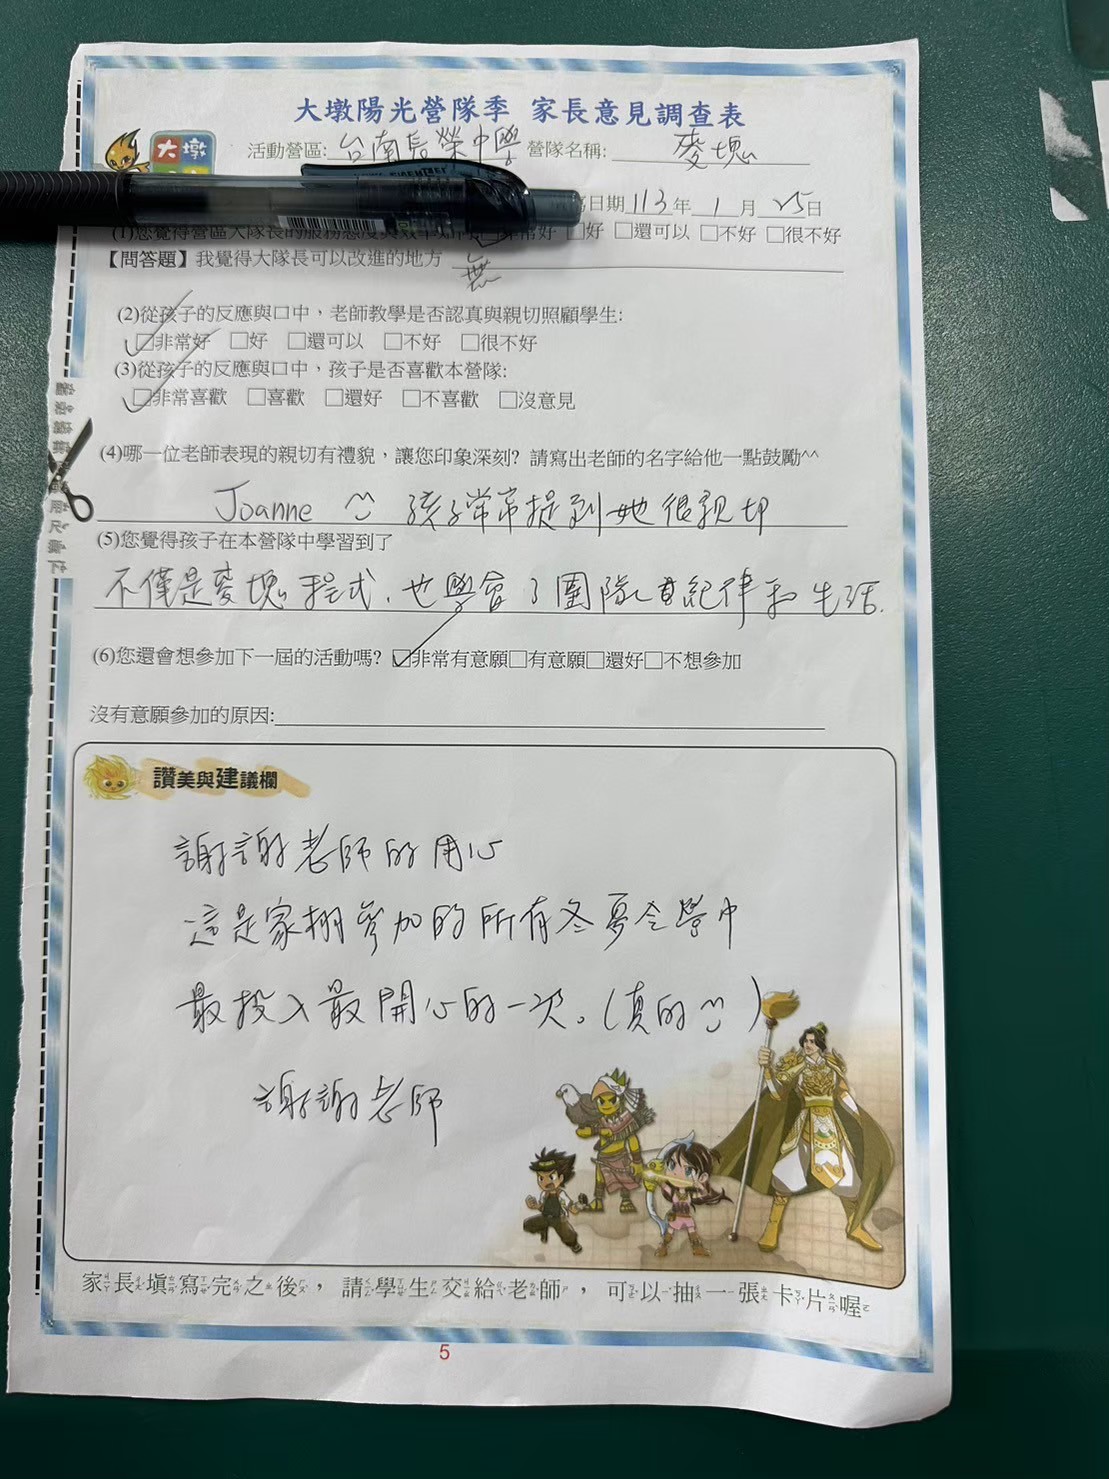 大墩陽光營隊季 家長意見調查表
大墩
活動營區:台南長榮中學 營隊名稱:麥塊
日期113年1月25日
(1)您覺得營區大隊長的服務態度與效率如何 非常好 □好 □還可以 □不好 □很不好
【問答題】我覺得大隊長可以改進的地方 無
(2)從孩子的反應與口中,老師教學是否認真與親切照顧學生:
☑非常好 □好 □還可以 □不好 □很不好
(3)從孩子的反應與口中,孩子是否喜歡本營隊:
☑非常喜歡 □喜歡 □還好 □不喜歡 □沒意見
(4)哪一位老師表現的親切有禮貌,讓您印象深刻? 請寫出老師的名字給他一點鼓勵^^
Joanne 孩子常常提到她很親切
(5)您覺得孩子在本營隊中學習到了
不僅是麥塊程式,也學會了團隊紀律和生活.
(6)您還會想參加下一屆的活動嗎? ☑非常有意願□有意願□還好□不想參加
沒有意願參加的原因:
讚美與建議欄
謝謝老師的用心
這是家栩參加的所有冬夏令營中
最投入最開心的一次。(真的 )
謝謝老師
家長填寫完之後,請學生交給老師,可以抽一張卡片喔
5